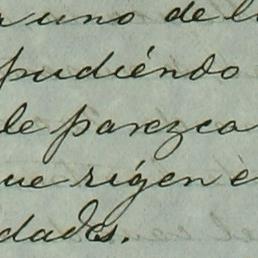 r uno de l
pudiéndo
le parezca
ue rígen e
dades.